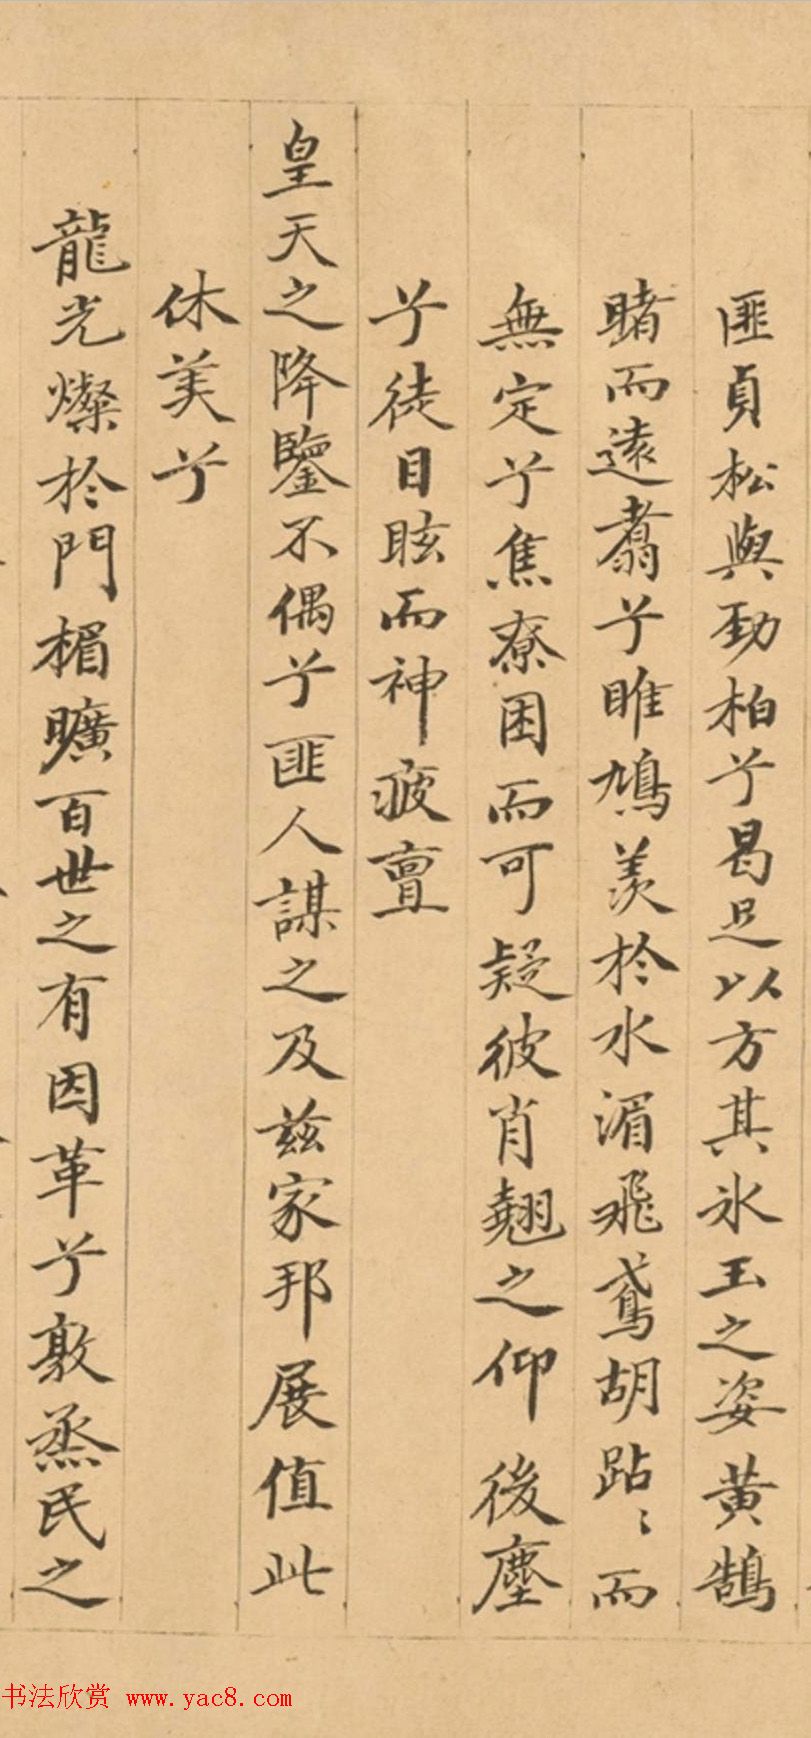 匪貞松與勁柏兮曷足以方其氷玉之姿黄鵠
睹而遠翥兮雎鳩羡於水湄飛鳶胡跕〻而
無定兮焦尞困而可疑彼肖翹之仰後塵
兮徒目眩而神疲亶
皇天之降鑒不偶兮匪人謀之及兹家邦展值此
休美兮
龍光燦於門楣曠百世之有因革兮敦烝民之
书法欣赏 www.yac8.com